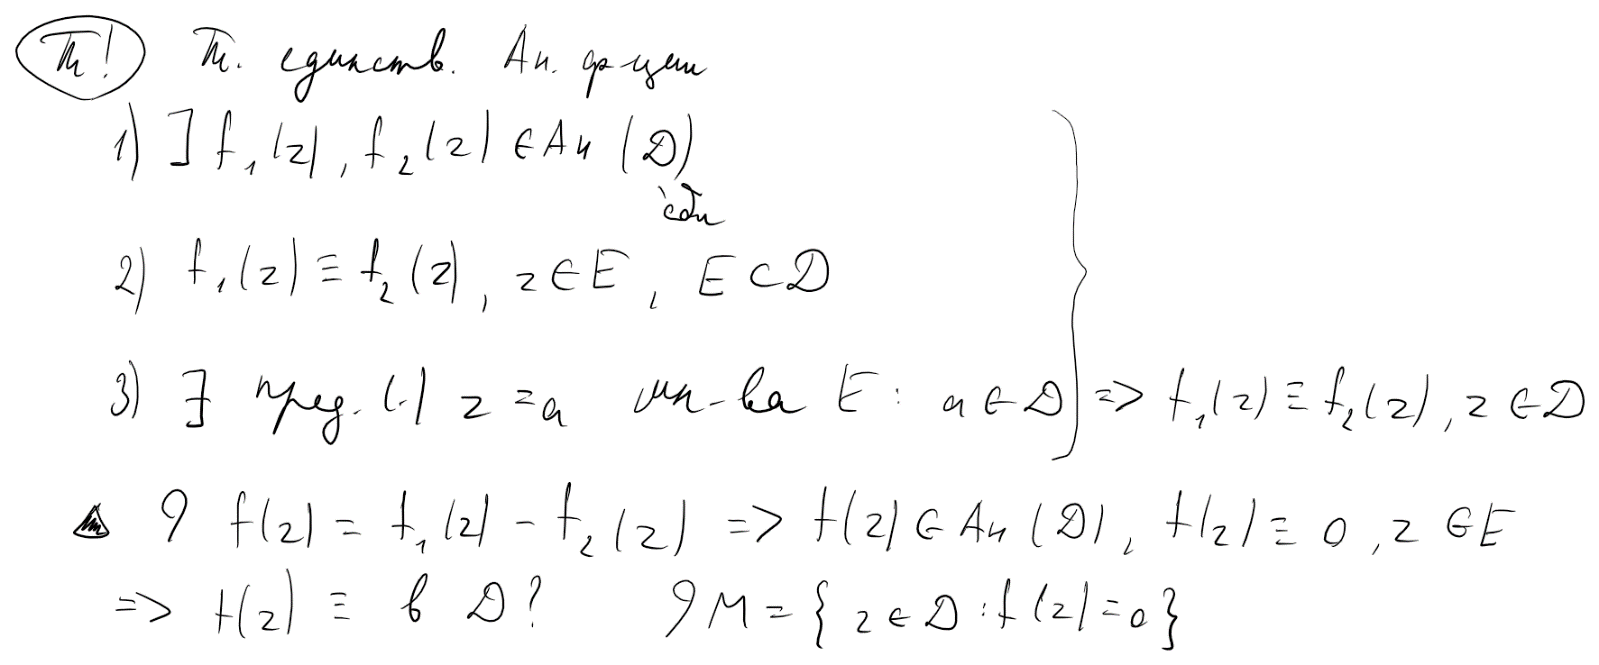 Т! Т. единств. Ан. ф-ции
1) ] f₁(z), f₂(z) ∈ Ан (D)
обл
2) f₁(z) ≡ f₂(z), z ∈ E, E ⊂ D
3) ∃ пред. (·) z = a мн-ва E : a ∈ D => f₁(z) ≡ f₂(z), z ∈ D
▲ f(z) = f₁(z) - f₂(z) => f(z) ∈ Ан (D), f(z) ≡ 0, z ∈ E
=> f(z) ≡ в D? M = { z ∈ D : f(z) = 0 }